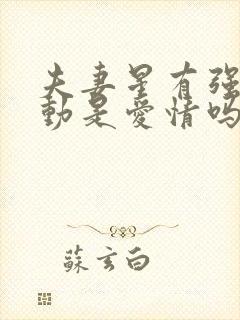 夫妻星有强
動是愛情吗
蘇玄白